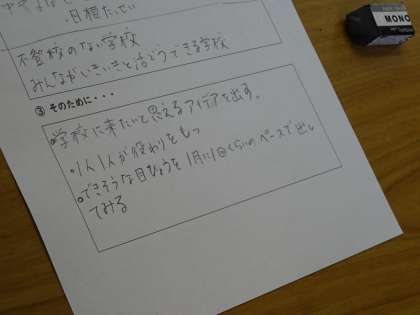 目標たっせい
不登校のない学校
みんながいきいきと活どうできる学校
③ そのために・・・
•学校に来たいと思えるアイデアを出す。
•1人1人が役わりをもつ
•できそうな目ひょうを1月に1回くらいのペースで出し
てみる
MONO